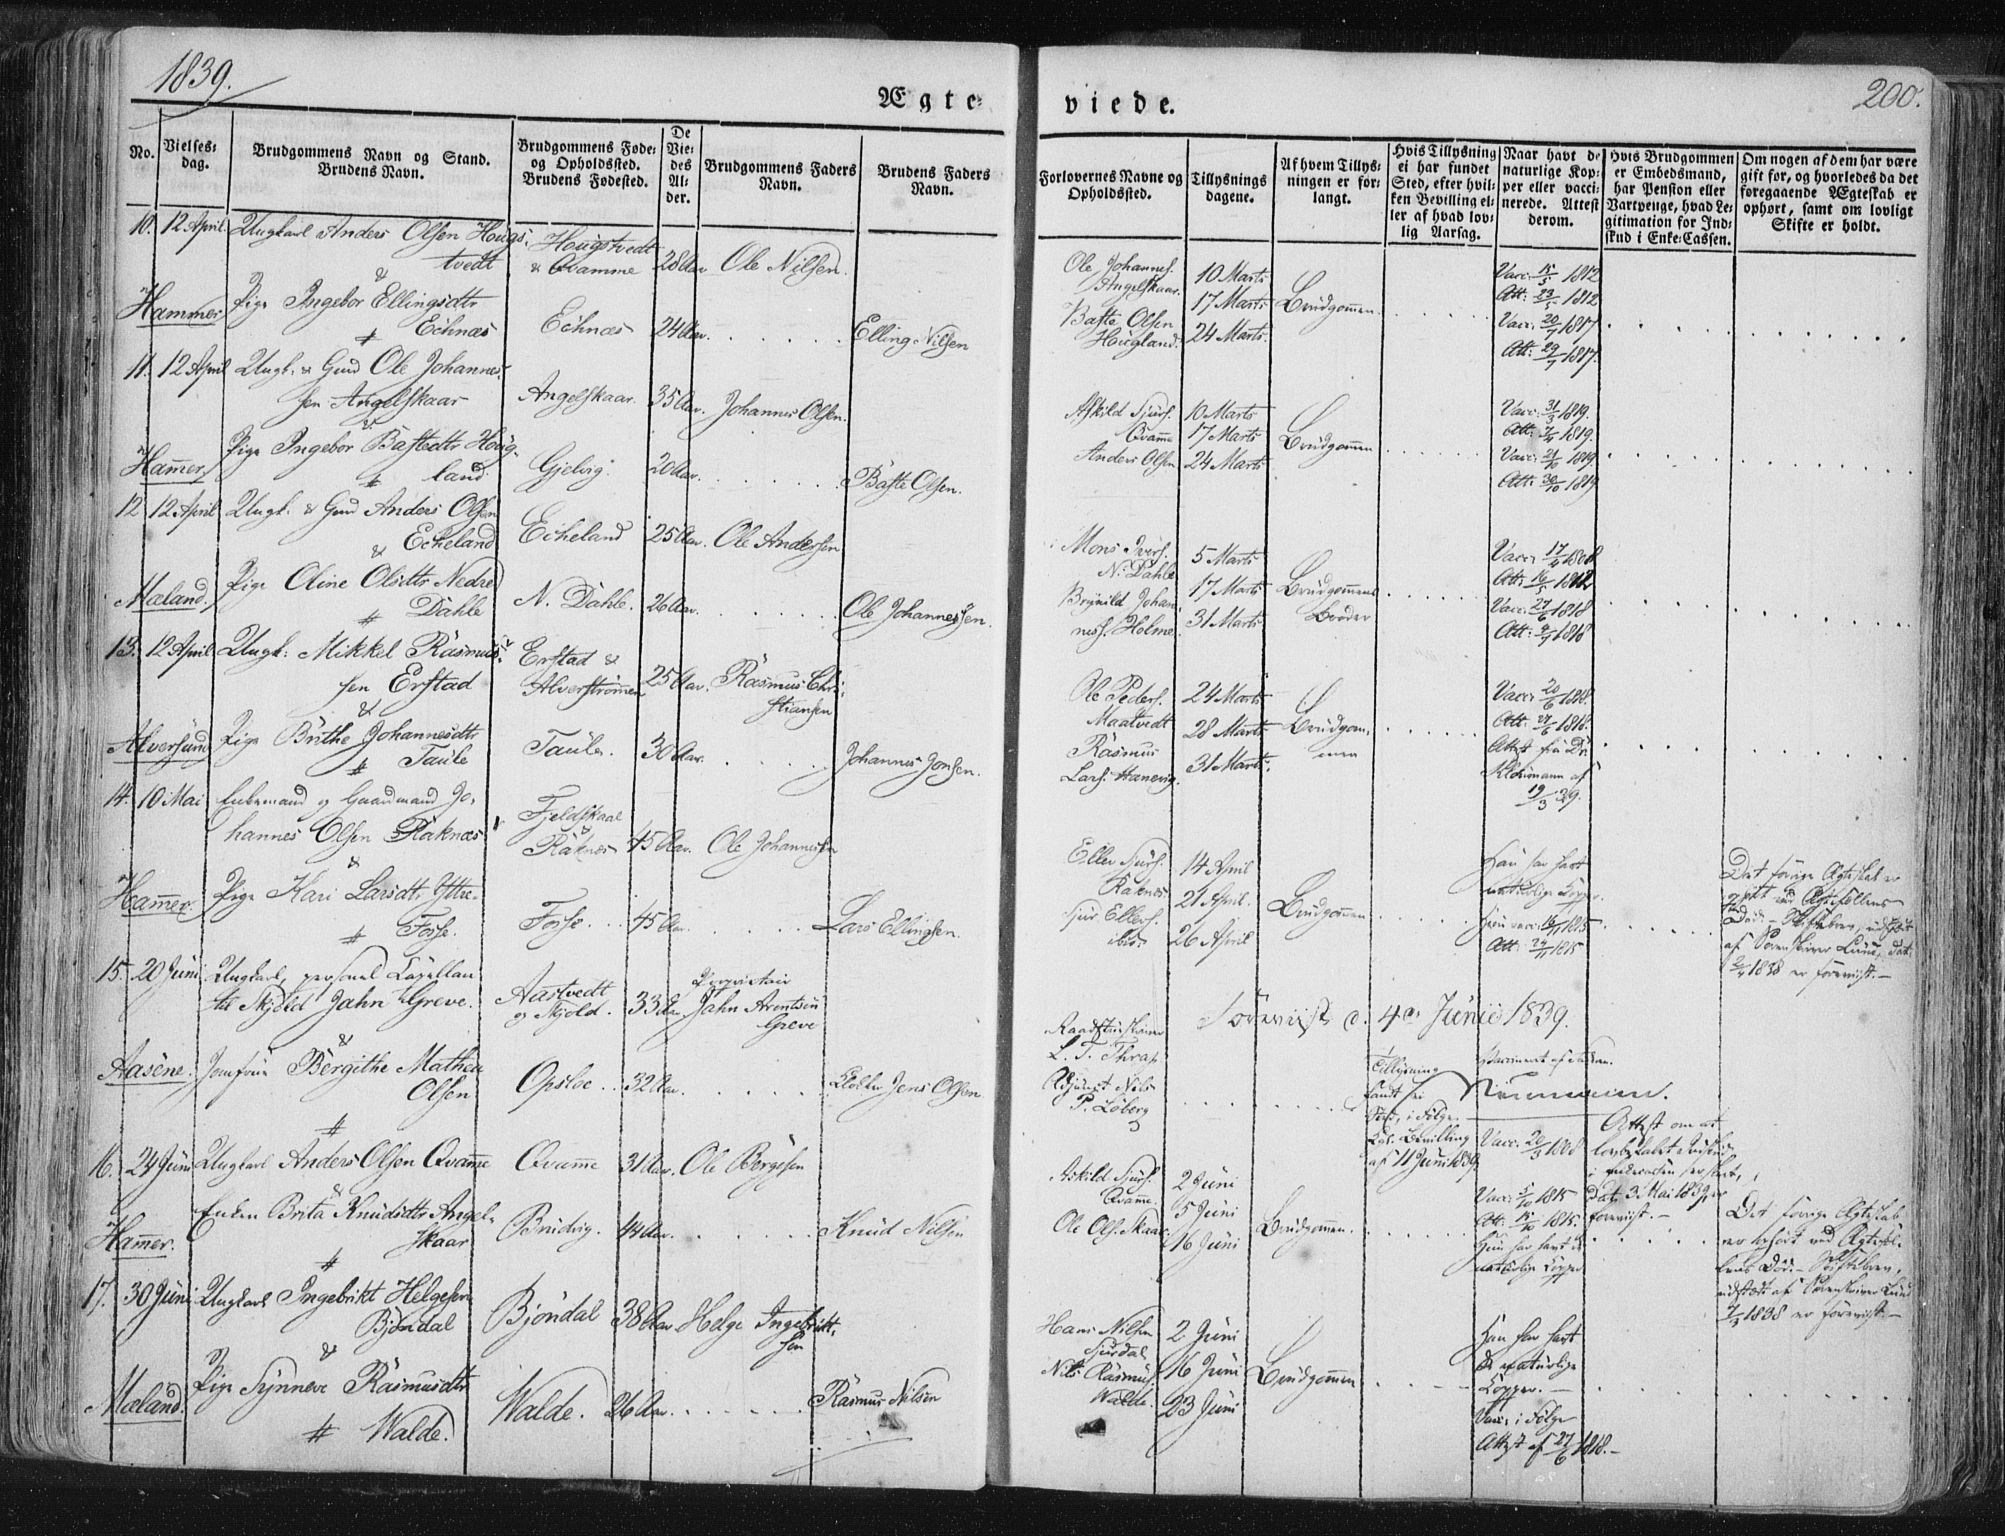 1839.
200.
Ægte-
viede.
No.
Vielses-
dag.
Brudgommens Navn og Stand.
Brudens Navn.
Brudgommens Føde-
og Opholdssted.
Brudens Fødested.
De
Vie-
des
Al-
der.
Brudgommens Faders
Navn.
Brudens Faders
Navn.
Forlovernes Navne og
Opholdssted.
Tillysnings
dagene.
Af hvem Tillys-
ningen er for-
langt.
Hvis Tillysning
ei har fundet
Sted, efter hvil-
ken Bevilling el-
ler af hvad lov-
lig Aarsag.
Naar havt de
naturlige Kop-
per eller vacci-
nerede. Attest
derom.
Hvis Brudgommen
er Embedsmand,
har Pension eller
Vartpenge, hvad Le-
gitimation for Ind-
skud i Enke-Cassen.
Om nogen af dem har være
gift før, og hvorledes da det
foregaaende Ægteskab er
ophørt, samt om lovligt
Skifte er holdt.
10. 12 April Ungkarl Anders Olsen Hougs-
tvedt
Hougstvedt
& Qvamme
28 Aar Ole Nilsen.
&
Hammer Pige Ingebor Ellingsdtr
Echnæs
Echnæs 24 Aar. Elling Nilsen
Ole Johannes.
Angelskaar.
Baste Olsen
Hougland.
10 Marts
17 Marts
24 Marts
Brudgommen
Vacc: 15/5 1812
Att: 23/5 1812
Vacc: 20/7 1817
Att: 29/7 1817.
11. 12 April Ungk: & Gmd Ole Johannes-
sen Angelskaar
Angelskaar 35 Aar. Johannes Olsen.
&
Hammer Pige Ingebor Bastedtr Houg-
land
Gjelvig 20 Aar. Baste Olsen.
Askild Sjurs.
Qvamme
Anders Olsen
10 Marts
17 Marts
24 Marts
Brudgommen
Vacc: 31/3 1819.
1819.
Vacc: 21/10 1819.
Att: 30/10 1819
12. 12 April Ungk. & Gmd Anders Olsen
Echeland
Echeland 25 Aar. Ole Andersen
&
Mæland. Pige Oline Olsdtr Nedre
Dahle
N. Dahle. 26 Aar. Ole Johannessen.
Mons Ivers.
N. Dahle
Brynild Johan-
ness. Holme
5 Marts
17 Marts
31 Marts
Brudgommens
Broder
Vacc: 17/4 1808
Att: 16/5 1812
Vacc: 27/6 1818
Att: 1818
13. 12 April Ungk: Mikkel Rasmus-
sen Erstad
Erstad &
Alverstrømmen
25 Aar. Rasmus Chri-
stiansen
&
Alversund Pige Brithe Johannesdtr
Taule
Taule. 30 Aar. Johannes Jonsen.
Ole Peders.
Maatvedt
Rasmus
Lars. Hanevig.
24 Marts
28 Marts
31 Marts.
Brudgom-
men
Vacc: 20/6 1818.
Att: 27/6 1818.
Attest fra Dr.
af
19/3 39.
14. 10 Mai Enkemand og Gaardmand Jo-
hannes Olsen Raknæs
Fjeldskaal
&
Raknæs
45 Aar. Ole Johannessen
&
Hammer. Pige Kari Larsdtr Yttre-
Fosse.
Fosse. 45 Aar Lars Ellingsen.
Eller Sjurs.
Raknæs
Sjur Ellers.
ibid.
14 April
21 April.
26 April
Brudgommen
Han har havt
naturlige Kopper.
Hun vacc: 16/11 1815
Att: 24/11 1815
Det forige Ægteskab er
ophørt ved Ægtefellens
Død. - Skiftebrev, udstædt
af Sorenskriver Lund, Dat.
1838 er forevist. -
15. 20 Juni Ungkarl, personel Capellan
til Skjold Jahn Greve.
Aastvedt
og Skjold.
33 Aar
Proprietair
Jahn Arentsen
Greve
&
Aasene. Jomfrue Bergithe Mathea
Olsen
Opsloe 32 Aar. Jens Olsen
Raadstuskriver
L. T. Thrap
Adjunct Nils
P. Løberg
Forevist d. 4de Junii 1839.
Tillysning
fandt ei
Sted, i Følge
Kgl. Bevilling
af 11 Juni 1839
Neumann.
Vacc: 20/3 1808
Attest om at
Dat. 3 Mai 1839 er
forevist. -
16. 24 Juni Ungkarl Anders Olsen Qvamme
Qvamme 31 Aar. Ole Børgesen
&
Hammer. Enken Brita Knudsdtr Angel-
skaar
Brudvig. 44 Aar. Knud Nilsen
Askild Sjurs.
Qvamme.
Ole Ols. Skaar
2 Juni
5 Juni
16 Juni
Brudgommen.
Vacc: 5/10 1815
Att: 15/10 1815.
Hun har havt de
naturlige Kopper
Det forige Ægteskab
er ophørt ved Ægtefel-
lens Død. - Skiftebrev,
udstædt af Sorenskriver Lund
1838 er forevist. -
17. 30 Juni Ungkarl Ingebrikt Helgesen
Bjøndal
Bjöndal 38 Aar Helge Ingebrikt-
sen
&
Mæland. Pige Synneve Rasmusdtr
Walde.
Walde. 26 Aar. Rasmus Nilsen
Hans Nilsen
Sjurdal
Nils Rasmus.
Walde.
2 Juni
16 Juni
23 Juni
Brudgommen
Han har havt
de naturlige
Kopper. -
Vacc: i Følge
Attest af 27/6 1818. -